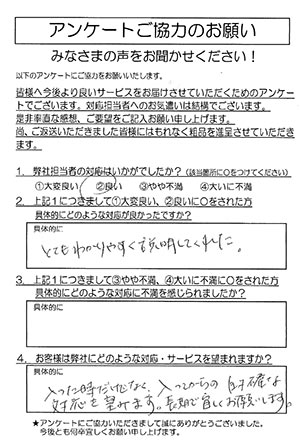 アンケートご協力のお願い
みなさまの声をお聞かせください！
以下のアンケートにご協力をお願いいたします。
皆様へ今後より良いサービスをお届けさせていただくためのアンケー
トでございます。対応担当者へのお気遣いは結構でございます。
是非率直な感想、ご要望をご記入お願い申し上げます。
尚、ご返送いただきました皆様にはもれなく粗品を進呈させていただき
ます。
1．弊社担当者の対応はいかがでしたか？（該当箇所に○をつけてください）
①大変良い ②良い ③やや不満 ④大いに不満
2．上記1につきまして①大変良い、②良いに○をされた方
具体的にどのような対応が良かったですか？
具体的に
とてもわかりやすく説明してくれた。
3．上記1につきまして③やや不満、④大いに不満に○をされた方
具体的にどのような対応に不満を感じられましたか？
具体的に
4．お客様は弊社にどのような対応・サービスを望まれますか？
具体的に
入った時だけでなく、入ってからの的確な
対応を望みます。長期で宜しくお願いします。
★アンケートにご協力いただきまして誠にありがとうございました。
今後とも何卒宜しくお願い申し上げます。